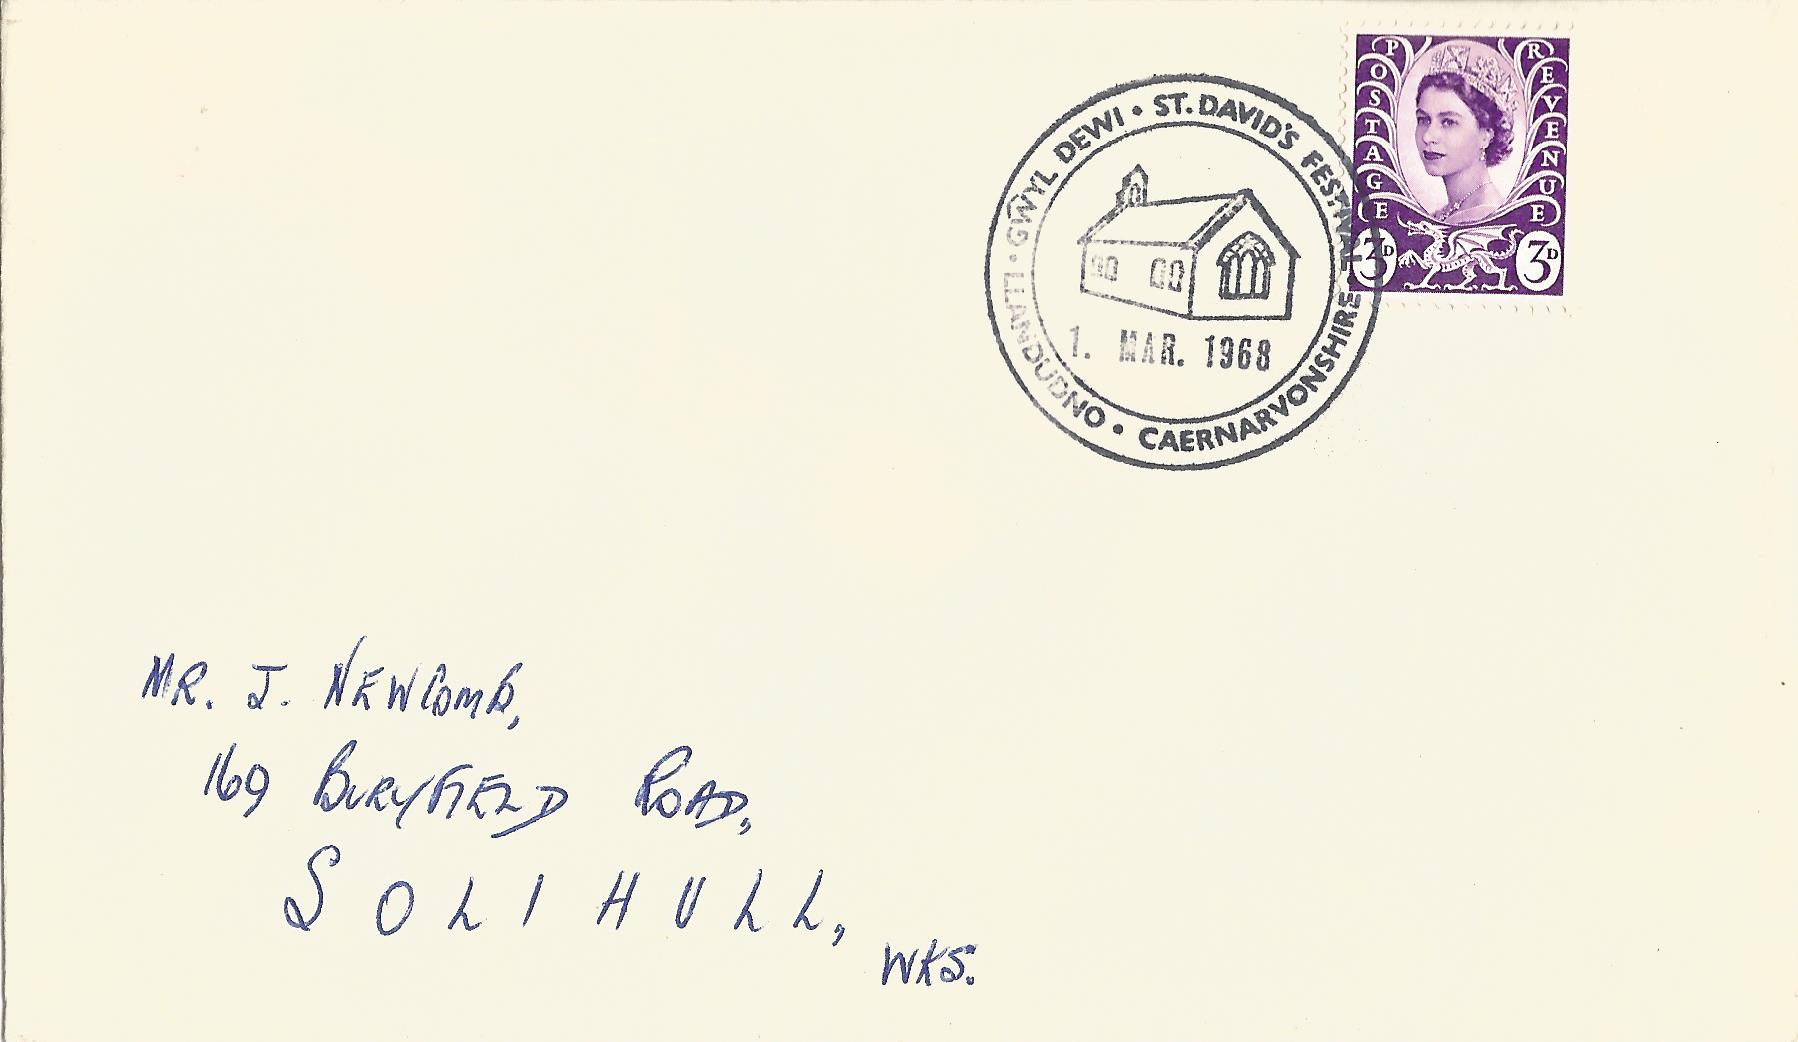 GWYL DEWI • ST. DAVID'S FESTIVAL •
LLANDUDNO • CAERNARVONSHIRE •
1. MAR. 1968
POSTAGE REVENUE
3D 3D
MR. J. NEWCOMB,
169 BURYFIELD ROAD,
SOLIHULL,
WKS.